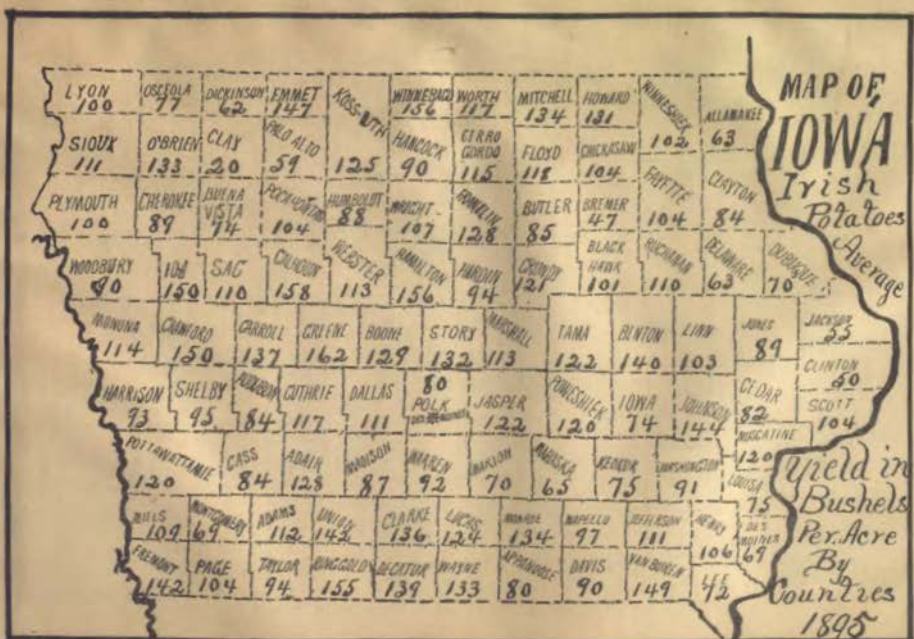 MAP OF
IOWA
Irish
Potatoes
Average
Yield in
Bushels
Per. Acre
By
Counties
1895
LYON
100
OSCEOLA
77
DICKINSON
62
EMMET
147
KOSSUTH
125
WINNEBAGO
156
WORTH
117
MITCHELL
134
HOWARD
131
WINNESHIEK
102
ALLAMAKEE
63
SIOUX
111
O'BRIEN
133
CLAY
20
PALO ALTO
59
HANCOCK
90
CERRO
GORDO
115
FLOYD
118
CHICKASAW
104
FAYETTE
104
CLAYTON
84
PLYMOUTH
100
CHEROKEE
89
BUENA
VISTA
74
POCAHONTAS
104
HUMBOLDT
88
WRIGHT
107
FRANKLIN
128
BUTLER
85
BREMER
47
WOODBURY
90
IDA
150
SAC
110
CALHOUN
158
WEBSTER
113
HAMILTON
156
HARDIN
94
GRUNDY
121
BLACK
HAWK
101
BUCHANAN
110
DELAWARE
63
DUBUQUE
70
MONONA
114
CRAWFORD
150
CARROLL
137
GREENE
162
BOONE
129
STORY
132
MARSHALL
113
TAMA
122
BENTON
140
LINN
103
JONES
89
JACKSON
55
CLINTON
50
HARRISON
93
SHELBY
95
AUDUBON
84
GUTHRIE
117
DALLAS
111
80
POLK
JASPER
122
POWESHIEK
120
IOWA
74
JOHNSON
144
CEDAR
82
SCOTT
104
MUSCATINE
120
POTTAWATTAMIE
120
CASS
84
ADAIR
128
MADISON
87
WAREN
92
MARION
70
MAHASKA
65
KEOKUK
75
WASHINGTON
91
LOUISA
75
MILLS
109
MONTGOMERY
69
ADAMS
112
UNION
142
CLARKE
136
LUCAS
124
MONROE
134
WAPELLO
97
JEFFERSON
111
HENRY
106
DES
MOINES
69
FREMONT
142
PAGE
104
TAYLOR
94
RINGGOLD
155
DECATUR
139
WAYNE
133
APPANOOSE
80
DAVIS
90
VAN BUREN
149
LEE